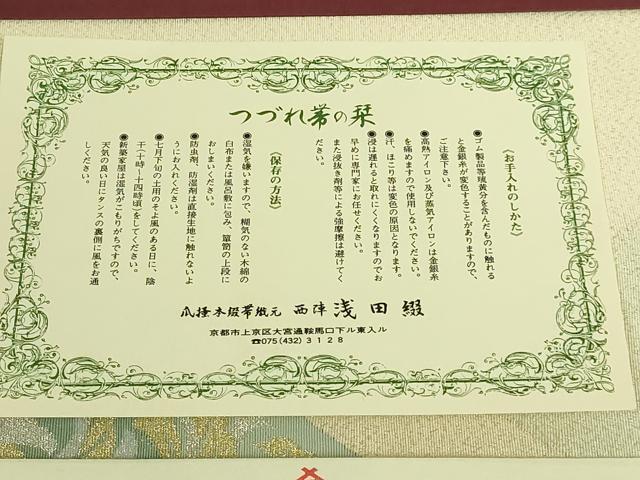 つづれ帯の栞
《お手入れのしかた》
●ゴム製品等硫黄分を含んだものに触れる
と金銀糸が変色することがありますので、
ご注意下さい。
●高熱アイロン及び蒸気アイロンは金銀糸
を痛めますので使用しないでください。
●汗、ほこり等は変色の原因となります。
●浸は遅れると取れにくくなりますのでお
早めに専門家にお任せください。
また浸抜き剤等による強摩擦は避けてく
ださい。
《保存の方法》
●湿気を嫌いますので、糊気のない木綿の
白布または風呂敷に包み、簞笥の上段に
おしまいください。
●防虫剤、防湿剤は直接生地に触れないよ
うにお入れください。
●七月下旬の土用のそよ風のある日に、陰
干(十時〜十四時頃)をしてください。
●新築家屋は湿気がこもりがちですので、
天気の良い日にタンスの裏側に風をお通
しください。
爪掻本綴帯織元 西陣 浅田綴
京都市上京区大宮通鞍馬口下ル東入ル
☎075(432)3128